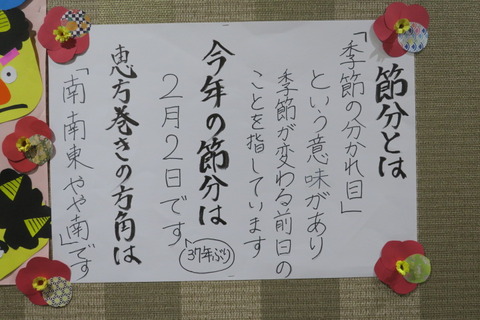 節分とは
「季節の分かれ目」
という意味があり
季節が変わる前日の
ことを指しています
今年の節分は
2月2日です
37年ぶり
恵方巻きの方角は
「南南東やや南」です